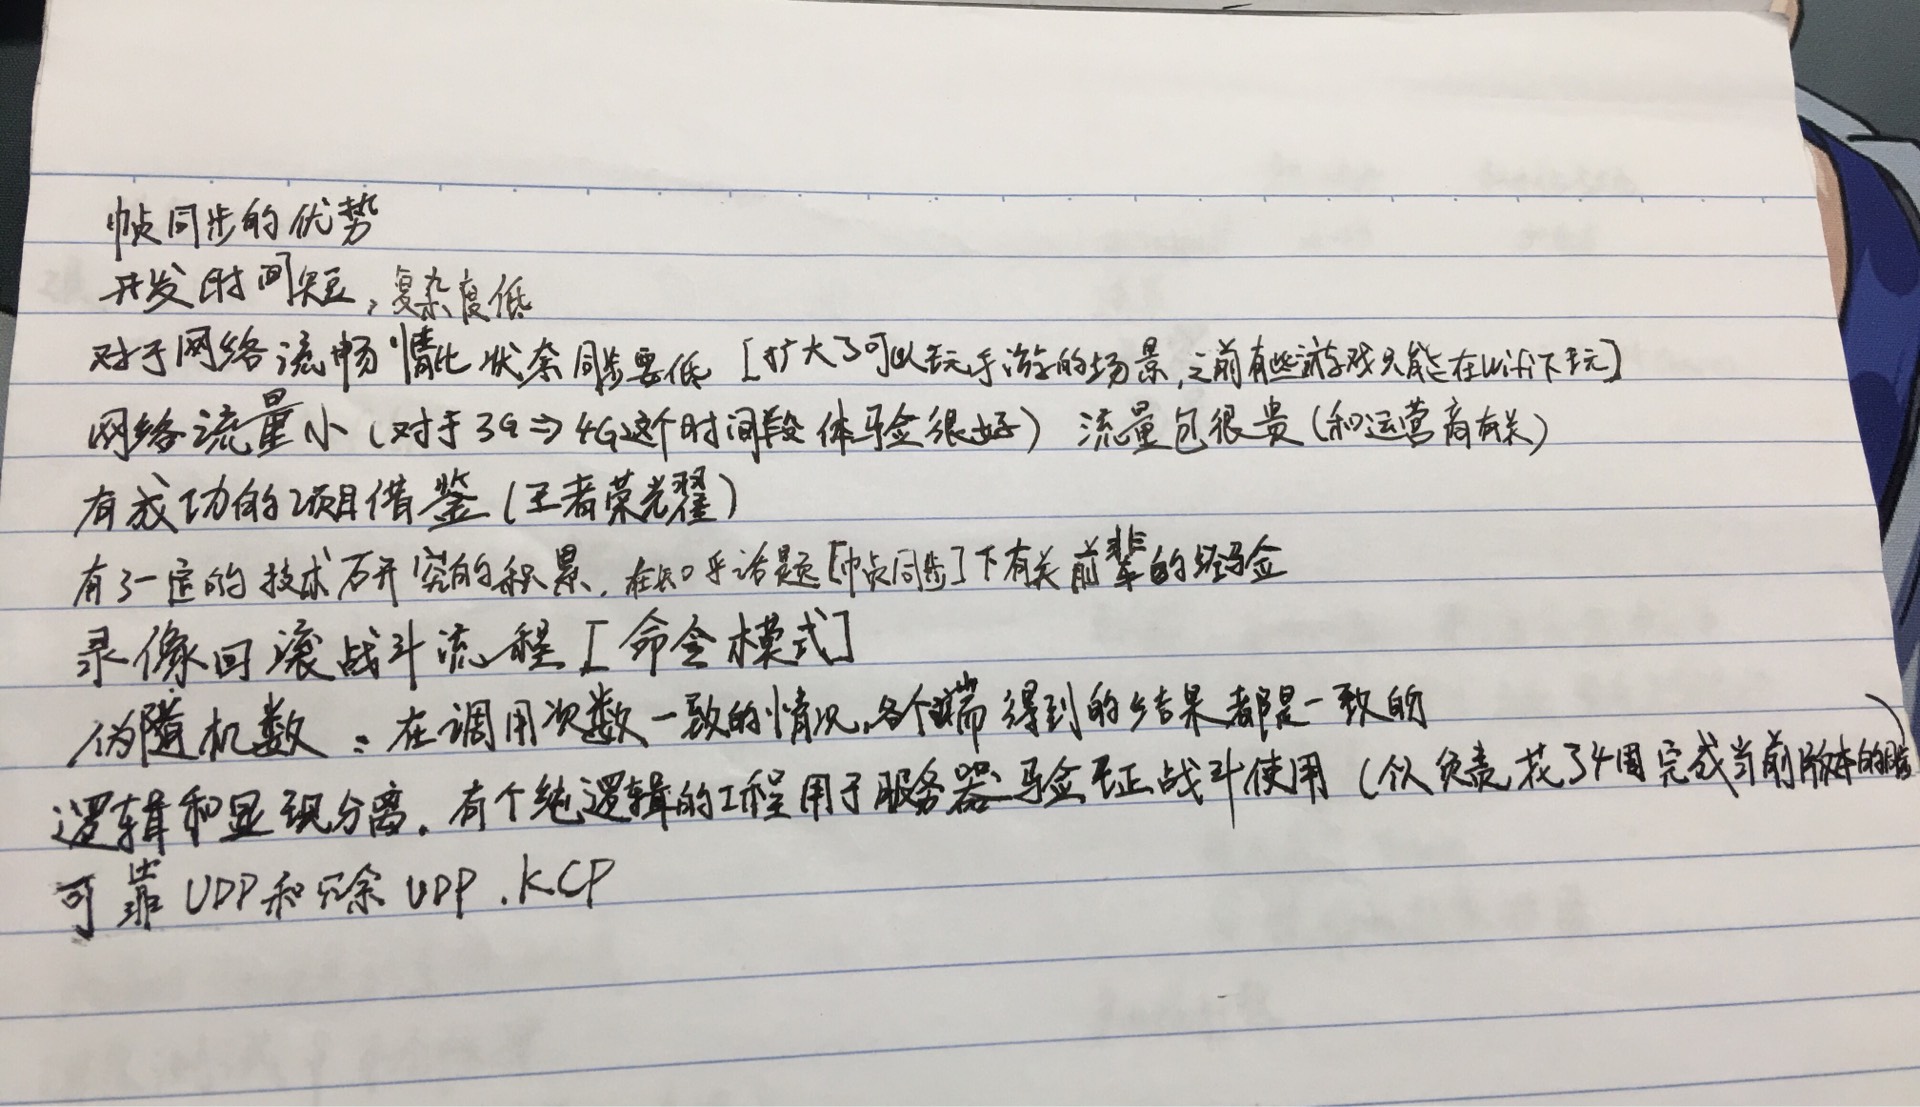 帧同步的优势
开发时间短,复杂度低
对于网络流畅情比状态同步要低 [扩大了可以玩手游的场景,之前有些游戏只能在wifi下玩]
网络流量小(对于3G⇒4G这个时间段体验很好) 流量包很贵(和运营商有关)
有成功的项目借鉴(王者荣耀)
有了一定的技术研究的积累.在知乎话题[帧同步]下有关前辈的经验
录像回滚战斗流程[命令模式]
伪随机数:在调用次数一致的情况,各个端得到的结果都是一致的
逻辑和显现分离.有个纯逻辑的工程用于服务器验证战斗使用(个人负责,花了4周完成当前版本的
可靠UDP和冗余UDP.KCP